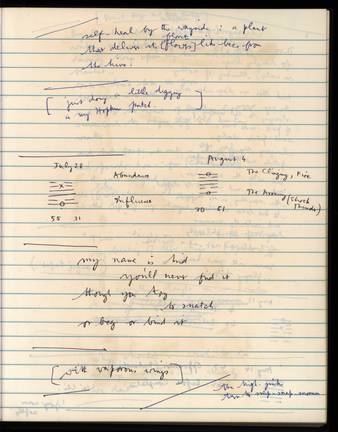 self-heal by the wayside : a plant
that delivers its florets (flowers) like bees from
the hive.
[ just doing a little digging
in my Hopkins ]
July 28
August 4
Abundance
The Clinging, Fire
Influence
The Arousing (Shock
Thunder)
55 31
30 51
my name is hid
you'll never find it
though you try
to snatch
or beg or bind it
[ with vaporous wings ]
the high